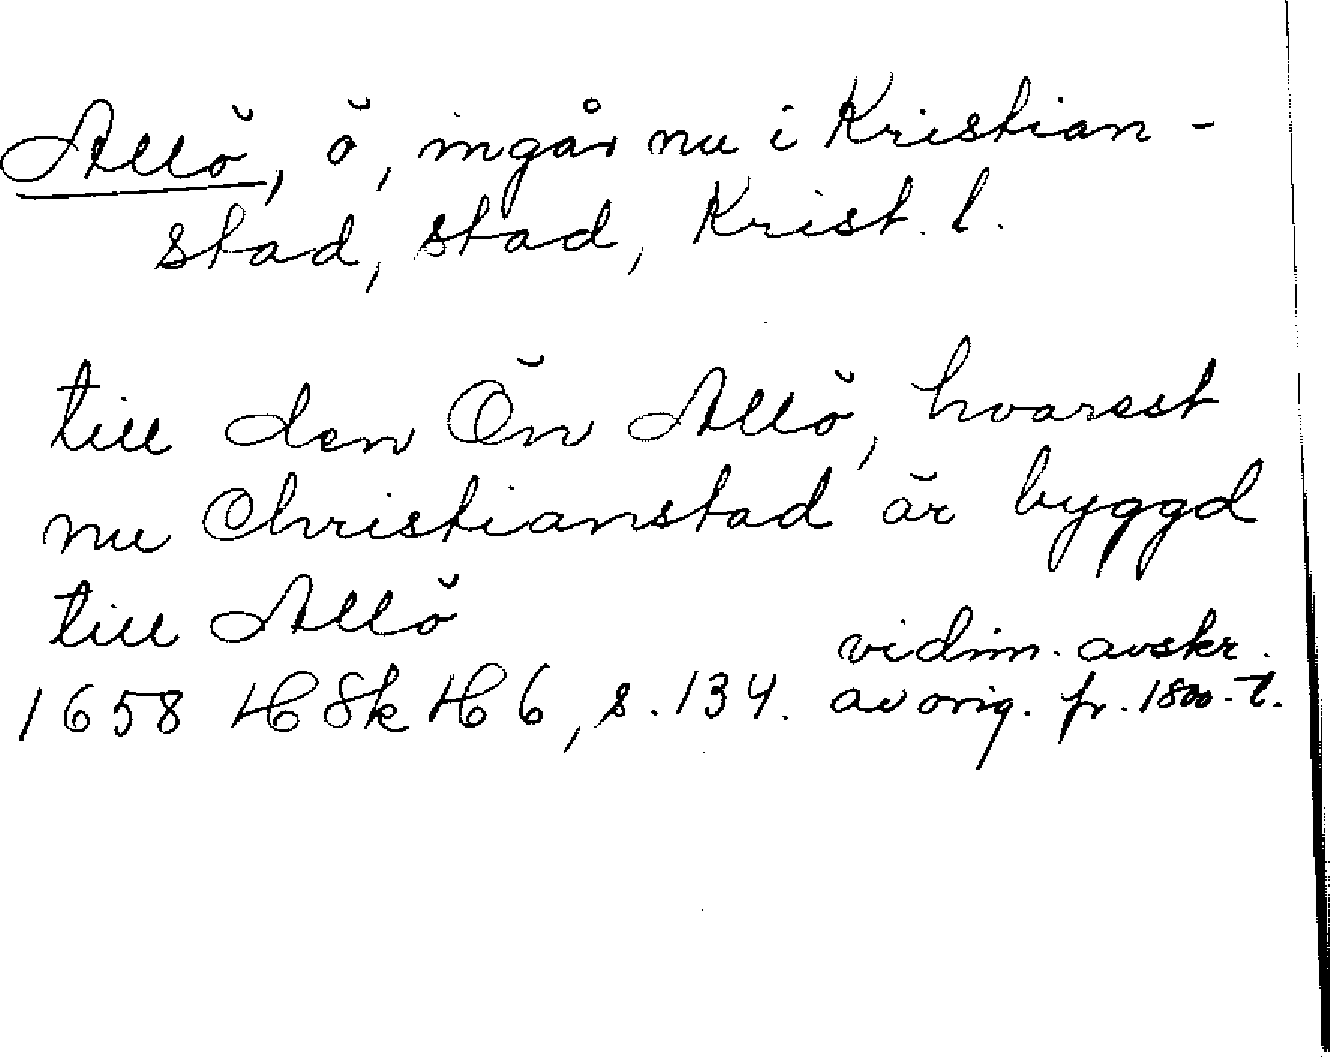 Allö, ö, ingår nu i Kristian-
stad, stad, Krist. l.
till den Ön Allö, hvarest
nu Christianstad är byggd
till Allö
1658 HSkH 6, s. 134. vidim. avskr.
av orig. fr. 1800-t.